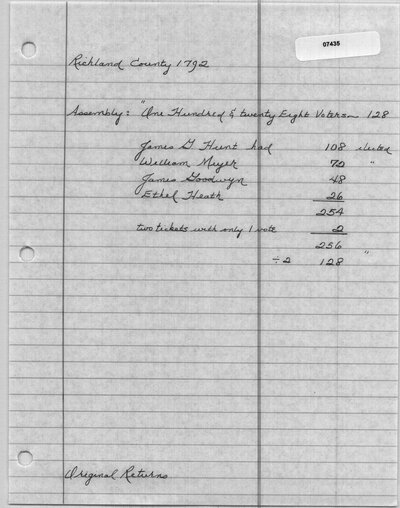 07435
Richland County 1792
Assembly: "One Hundred & twenty Eight Voters— 128
James G. Hunt had 108 elected
William Meyer 72 "
James Goodwyn 48
Ethel Heath 26
254
two tickets with only 1 vote 2
256 "
÷2 128
Original Returns